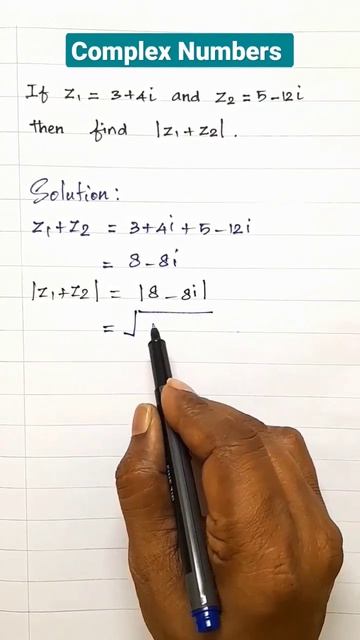 Complex Numbers
If z₁ = 3+4i and z₂ = 5-12i
then find |z₁+z₂|.
Solution:
z₁+z₂ = 3+4i+5-12i
= 8-8i
|z₁+z₂| = |8-8i|
= √